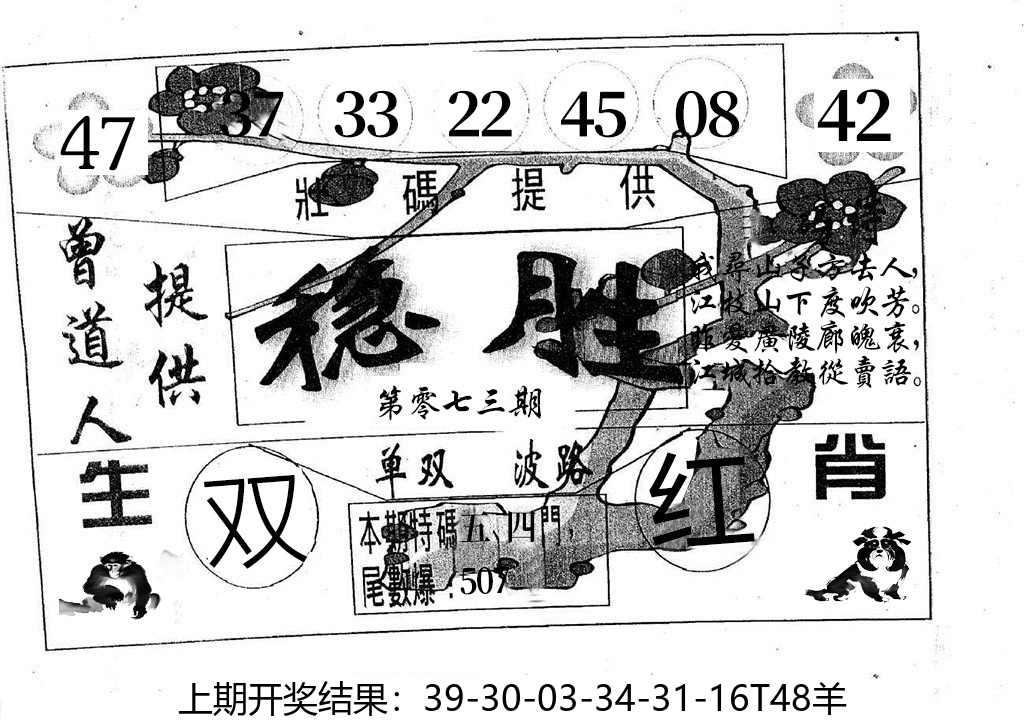 47 37 33 22 45 08 42
壯碼提供
曾道人
提供
稳胜
第零七三期
江枝山下度吹芳。
昨愛廣陵廊魄衰，
江城拾教從賣語。
单双 波路
生肖
双
红
本期特碼五、四門,
尾數爆:507
上期开奖结果：39-30-03-34-31-16T48羊